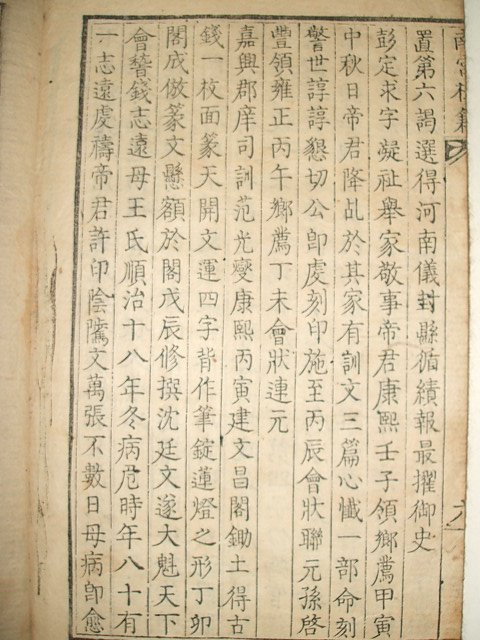 置第六謁選得河南儀封縣循績報最擢御史
彭定求字凝祉舉家敬事帝君康熙壬子領鄉薦甲寅
中秋日帝君降乩於其家有訓文三篇心懺一部命刻
警世諄諄懇切公卽虔刻印施至丙辰會狀聯元孫啓
豐領雍正丙午鄉薦丁未會狀連元
嘉興郡庠司訓范光燮康熙丙寅建文昌閣鋤土得古
錢一枚面篆天開文運四字背作筆錠蓮燈之形丁卯
閣成倣篆文懸額於閣戊辰修撰沈廷文遂大魁天下
會暬錢志遠母王氏順治十八年冬病危時年八十有
一志遠虔禱帝君許印陰騭文萬張不數日母病卽愈